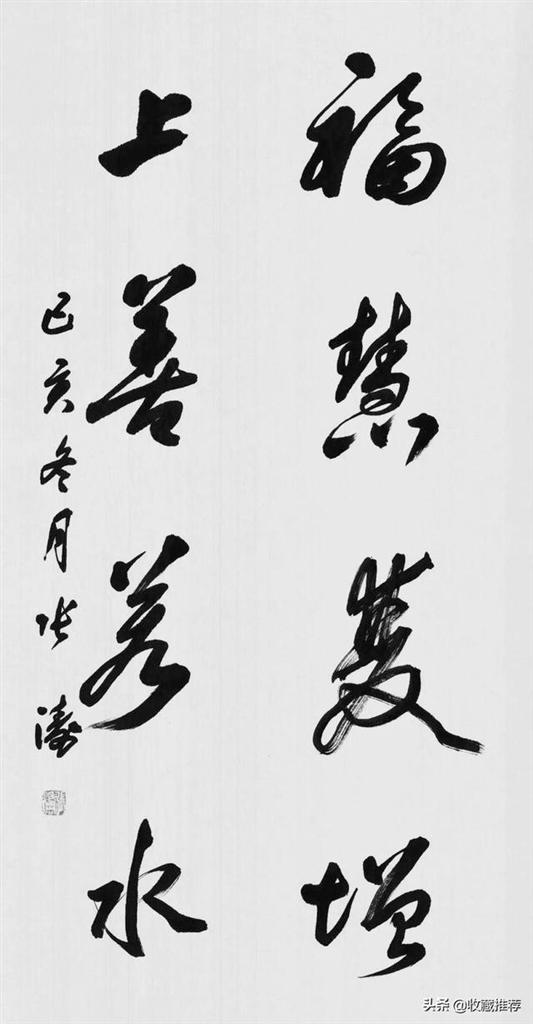 福慧雙增
上善若水
己亥冬月张濤
头条 @收藏推荐